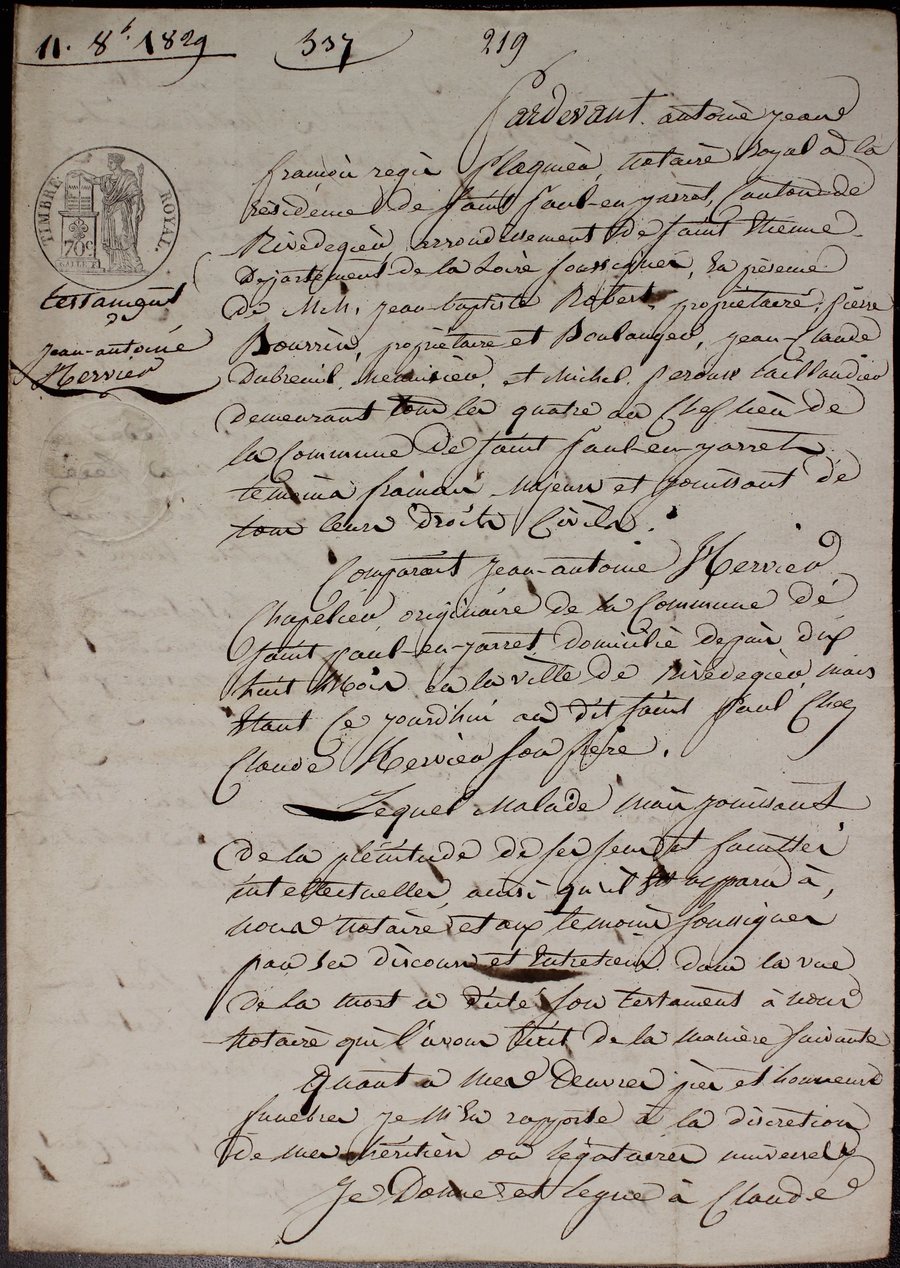 11. 8b. 1829 337 219
TIMBRE ROYAL.
70c
testament
de
jean-antoine
Hervier
Pardevant antoine jean
françois regis notaire royal a la
résidence de Saint Paul-en-jarret, Canton de
Rivedegier arrondissement de Saint Etienne
Département de la Loire soussigner, En présence
de M.M. jean-baptiste Robert propriétaire, pierre
Bourrin, propriétaire et Boulanger, jean-Claude
Dubreuil, menuisier, et Michel taillandier
demeurant tous les quatre au Chef lieu de
la Commune de Saint Paul-en-jarret
temoins français majeurs et jouissant de
tous leurs droits Civils.
Comparant jean-antoine Hervier
Chapelier, originaire de la Commune de
Saint paul-en-jarret, domicilié depuis dix
huit Mois en la ville de rivedegier, mais
Etant Ce jourdhui au dit Saint Paul, Chez
Claude Hervier son frere.
Lequel Malade mais jouissant
de la plénitude de ses sens et facultés
intellectuelles, ainsi qu'il Est apparu à
nous notaire et aux temoins soussigner
par ses discours et Entretien dans la vue
de la mort a dicté son testament à nous
notaire qui l'avons Ecrit de la manière suivante
Quant a mes Oeuvres pies et honneurs
funebres je m'En rapporte à la discretion
de mes héritiers ou légataires universels
Je Donne et legue à Claude